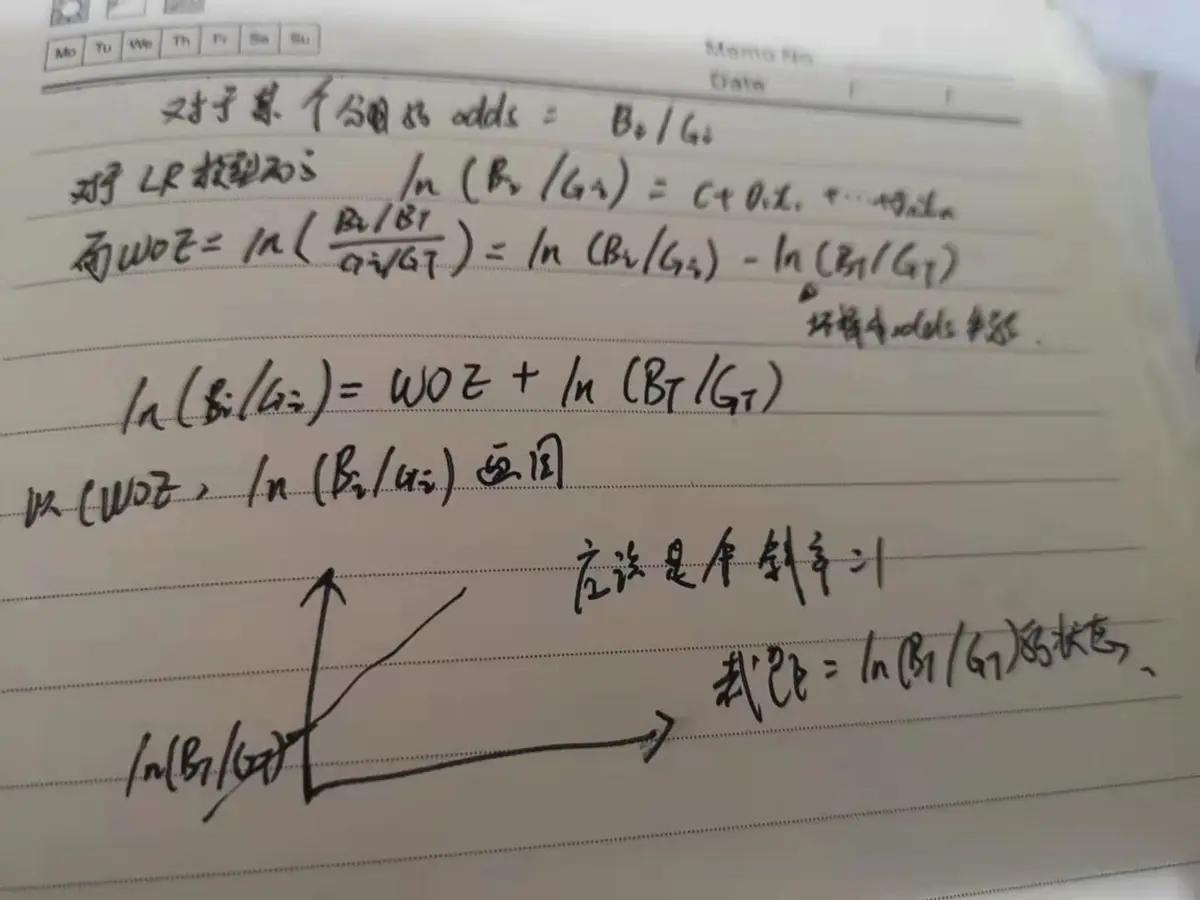 Mo Tu We Th Fr Sa Su
Memo No.
Date
对于某个分组的 odds = Bi/Gi
对于LR模型而言 ln(Bi/Gi) = C+θ1x1+…+θnxn
而WOE = ln((Bi/BT)/(Gi/GT)) = ln(Bi/Gi) - ln(BT/GT)
样本odds
ln(Bi/Gi) = WOE + ln(BT/GT)
以(WOE, ln(Bi/Gi) 画图
应该是个斜率=1
截距 = ln(BT/GT)的状态、
ln(BT/GT)